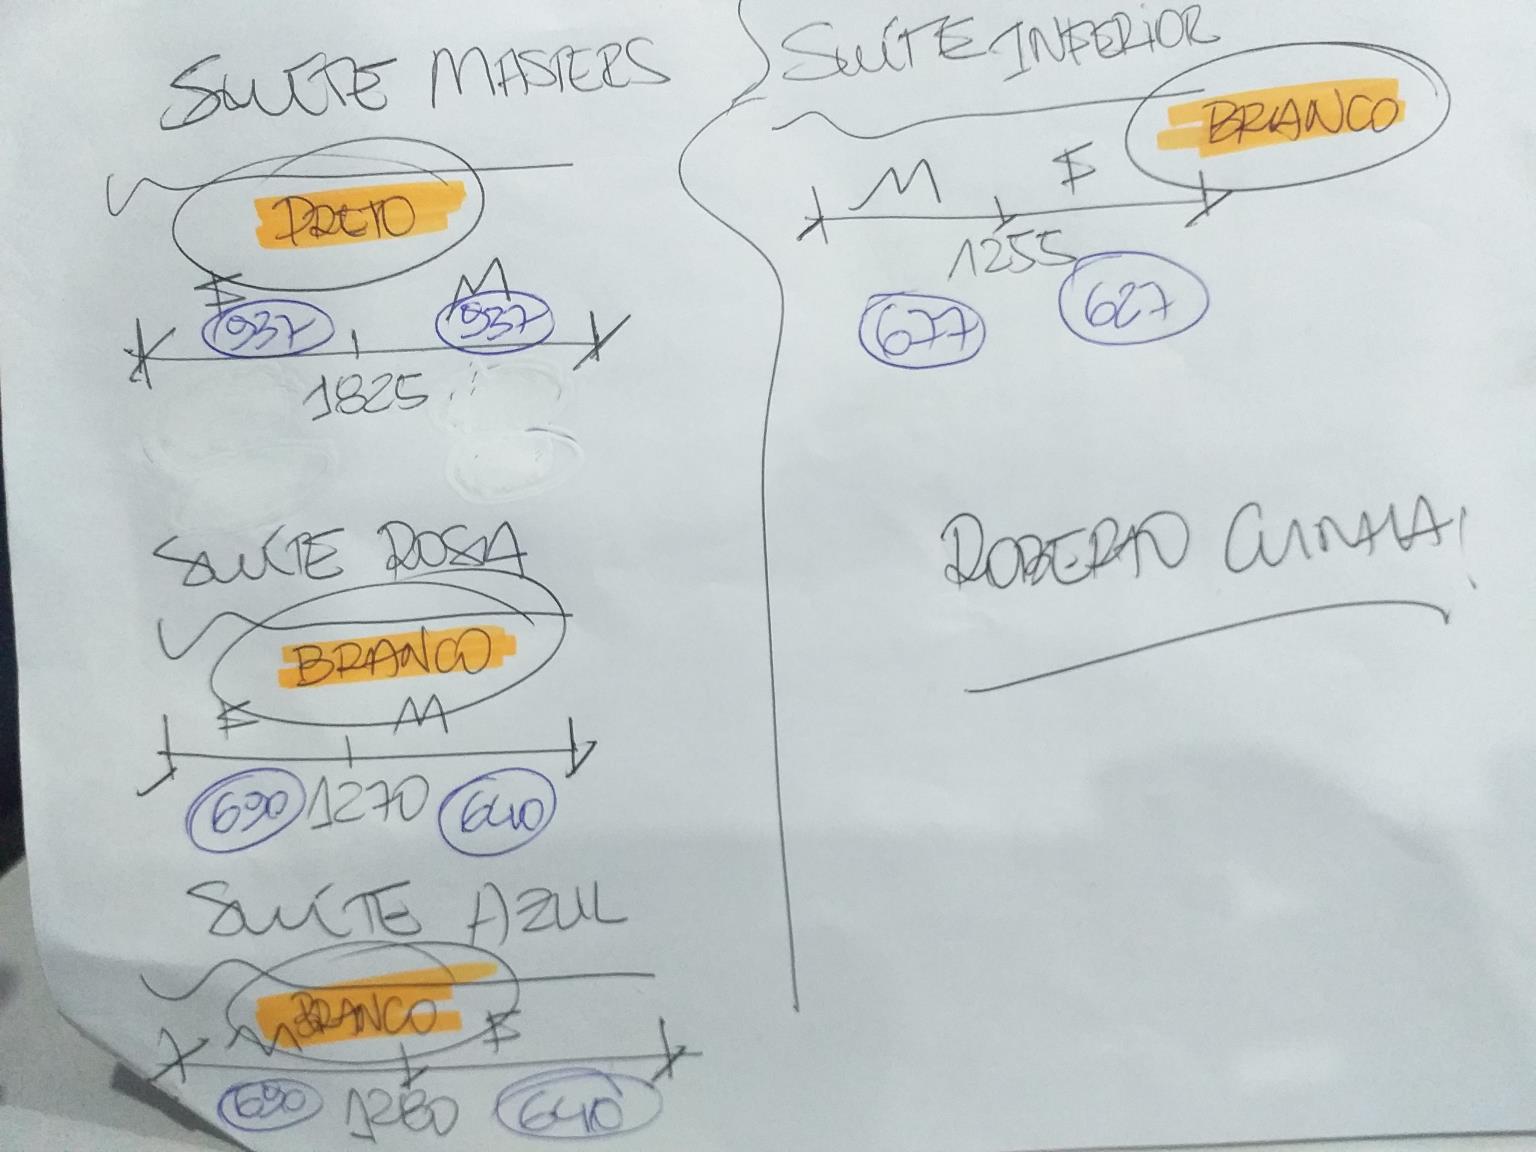 SUÍTE MASTERS
PRETO
F M
937 937
1825
SUÍTE ROSA
BRANCO
F M
690 1270 640
SUÍTE AZUL
BRANCO
M F
690 1280 640
SUÍTE INFERIOR
BRANCO
M F
1255
677 627
ROBERTO